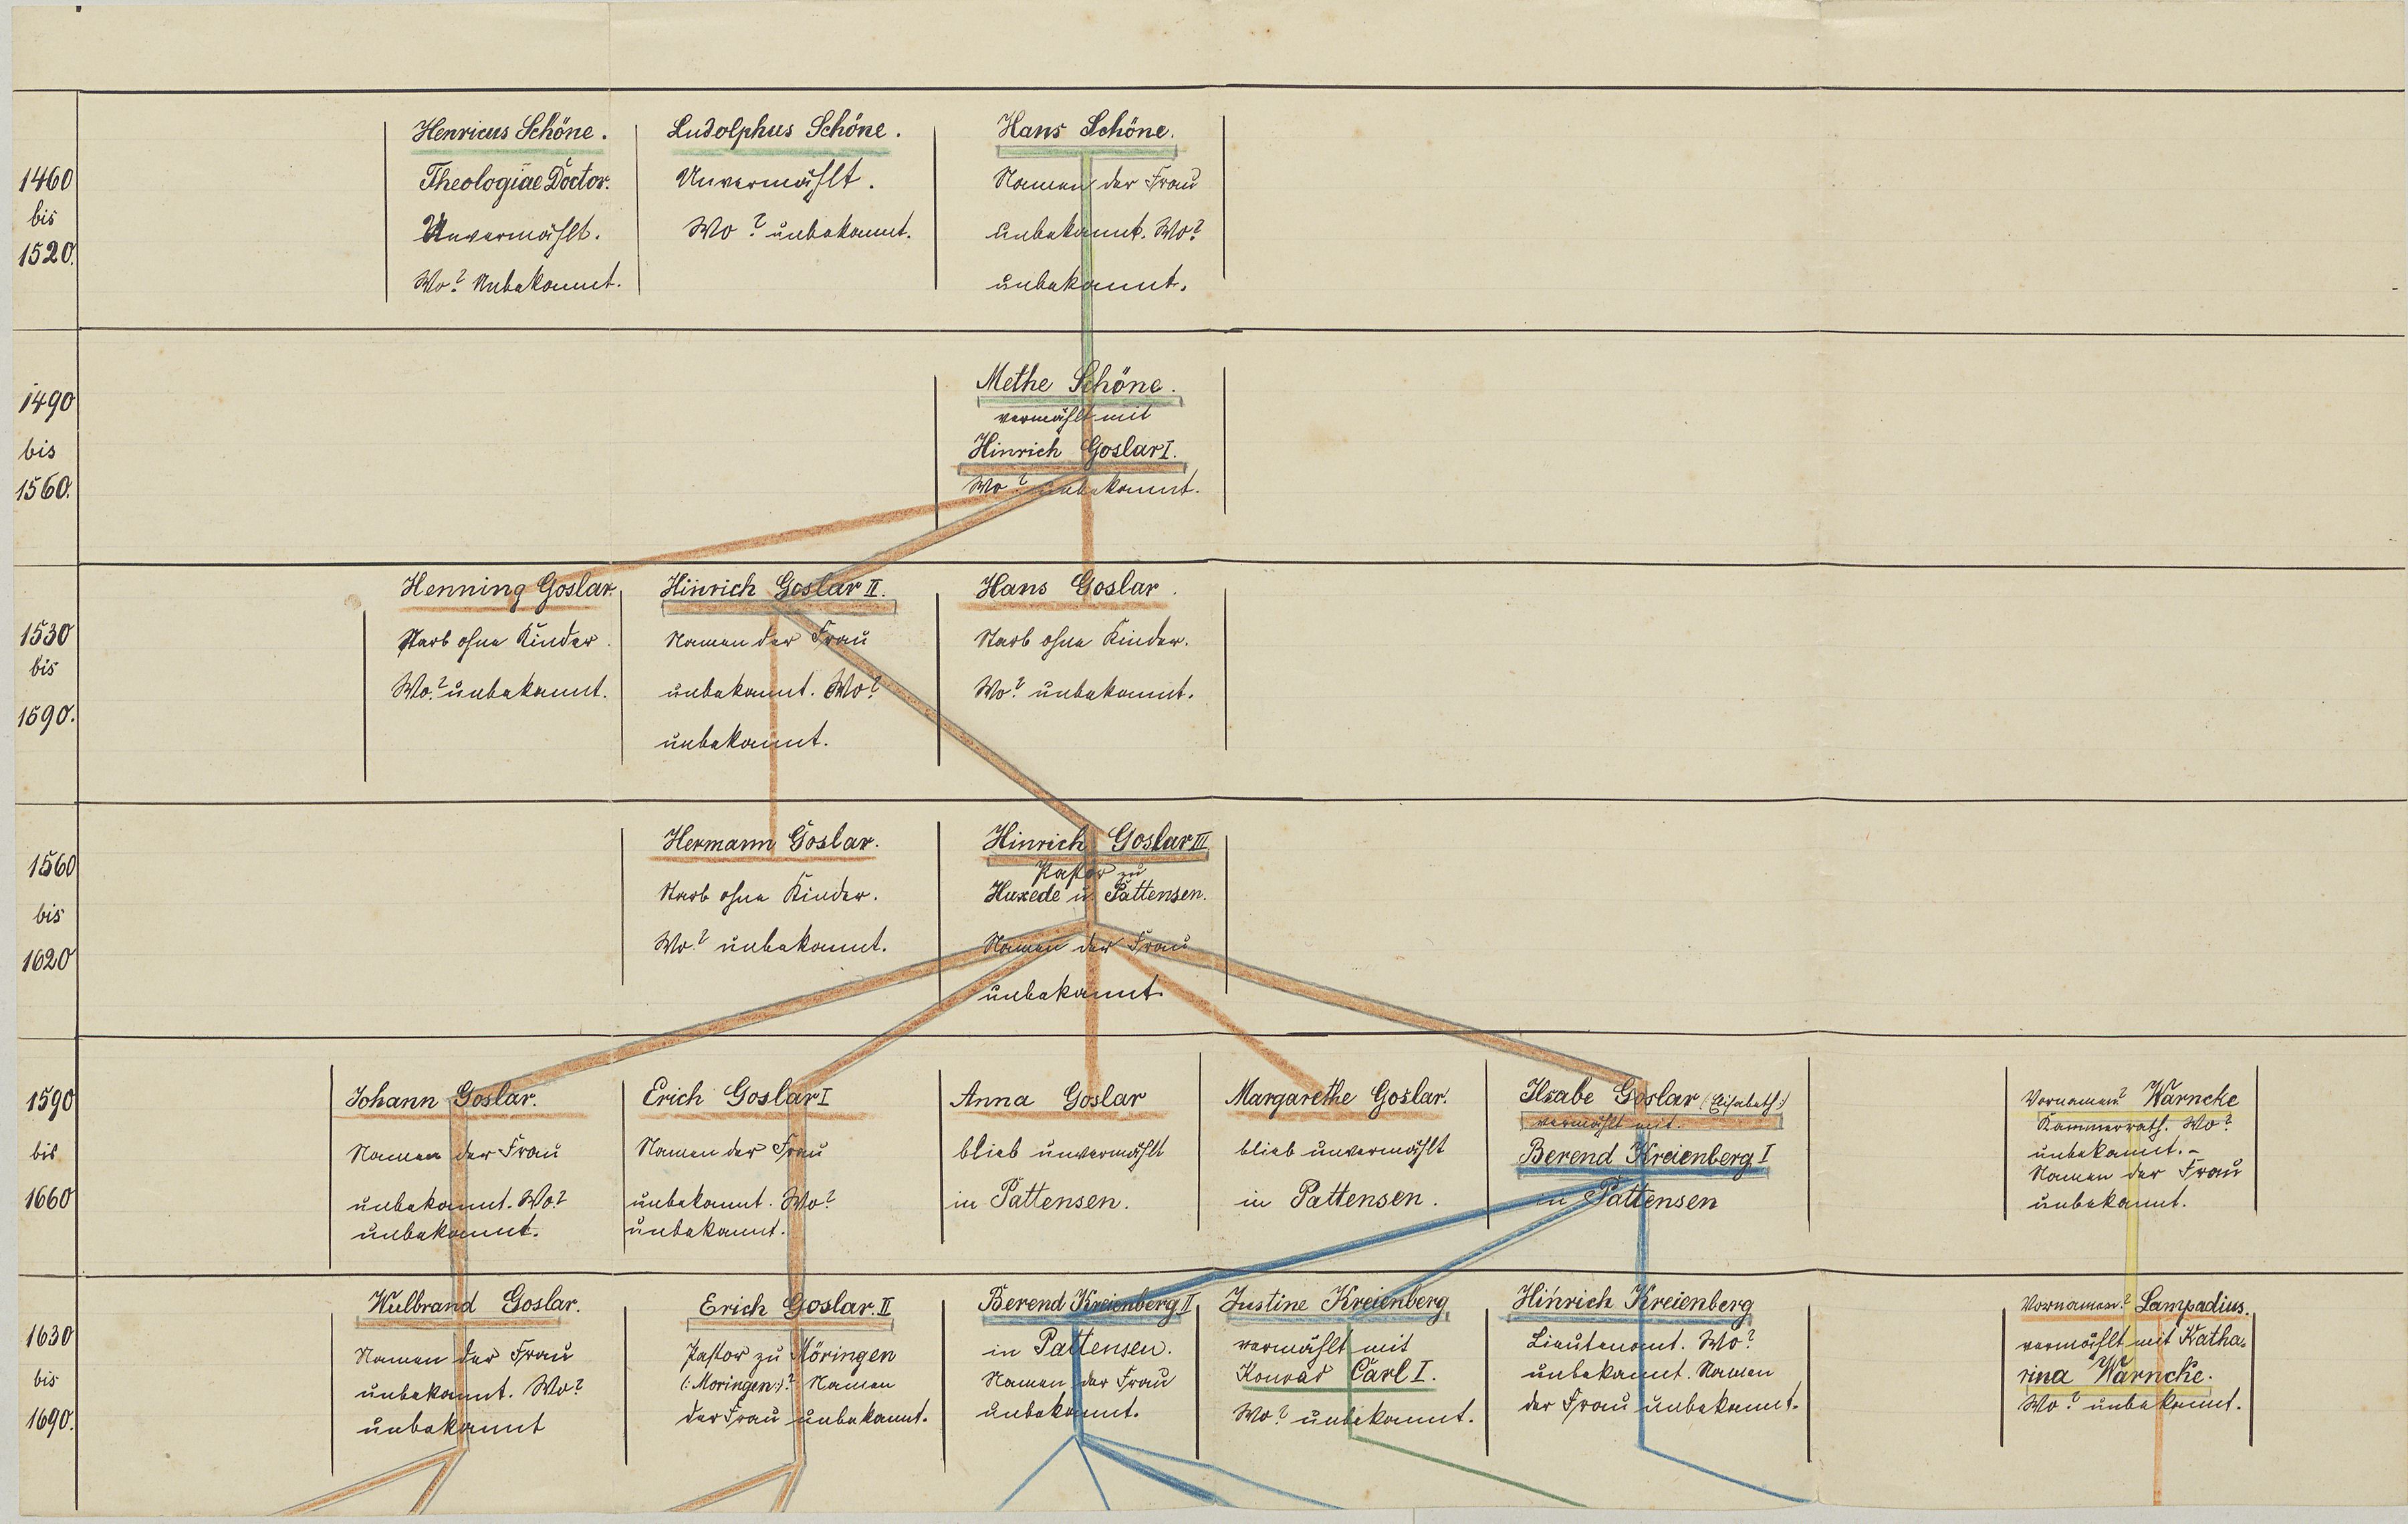 1460
bis
1520.
Henricus Schöne.
Theologiae Doctor.
Unvermählt.
Wo? Unbekannt.
Ludolphus Schöne.
Unvermählt.
Wo? unbekannt.
Hans Schöne.
Namen der Frau
unbekannt. Wo?
unbekannt.
1490
bis
1560.
Methe Schöne.
vermählt mit
Hinrich Goslar I.
Wo? unbekannt.
1530
bis
1590.
Henning Goslar.
Starb ohne Kinder.
Wo? unbekannt.
Hinrich Goslar II.
Namen der Frau
unbekannt. Wo?
unbekannt.
Hans Goslar.
Starb ohne Kinder.
Wo? unbekannt.
1560
bis
1620
Hermann Goslar.
Starb ohne Kinder.
Wo? unbekannt.
Hinrich Goslar III
Pastor zu
Huxede u. Pattensen.
Namen der Frau
unbekannt.
1590
bis
1660
Johann Goslar.
Namen der Frau
unbekannt. Wo?
unbekannt.
Erich Goslar I
Namen der Frau
unbekannt. Wo?
unbekannt.
Anna Goslar
blieb unvermählt
in Pattensen.
Margarethe Goslar.
blieb unvermählt
in Pattensen.
Ilsabe Goslar (Elisabeth:)
vermählt mit
Berend Kreienberg I
in Pattensen
Vornamen? Warncke
Kammerrath. Wo?
unbekannt.-
Namen der Frau
unbekannt.
1630
bis
1690.
Wulbrand Goslar.
Namen der Frau
unbekannt. Wo?
unbekannt
Erich Goslar. II
Pastor zu Möringen
(: Moringen:)? Namen
der Frau unbekannt.
Berend Kreienberg II
in Pattensen.
Namen der Frau
unbekannt.
Justine Kreienberg
vermählt mit
Konrad Carl I.
Wo? unbekannt.
Hinrich Kreienberg
Lieutenant. Wo?
unbekannt. Namen
der Frau unbekannt.
Vornamen? Lampadius.
vermählt mit Katha-
rina Warncke.
Wo? unbekannt.